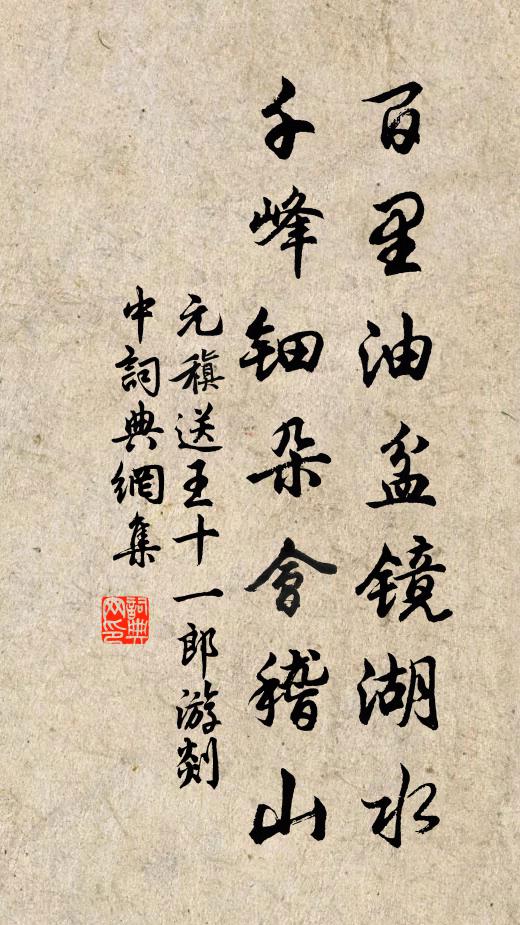 百里油盆镜湖水
千峰钿朵會稽山
元稹送王十一郎游剡
中詞典網集
詞典
网印